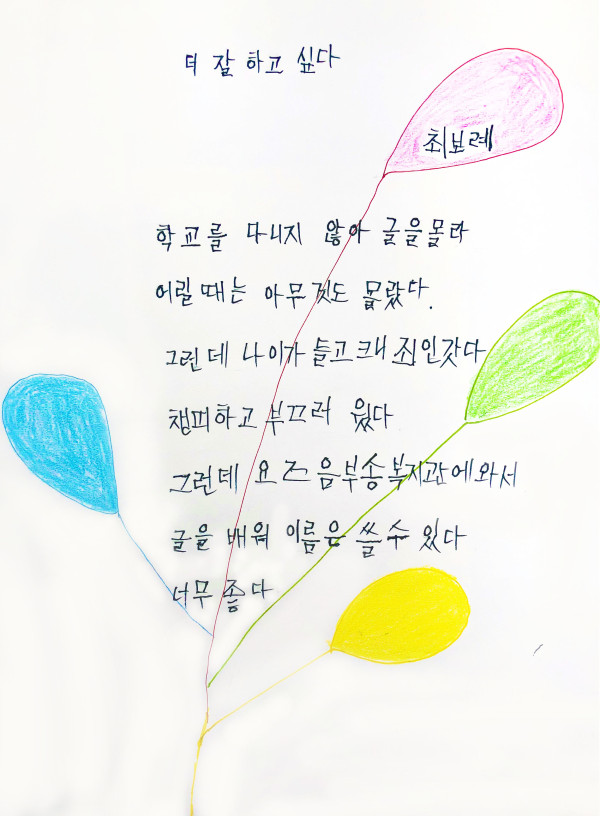 더 잘 하고 싶다
최보례
학교를 다니지 않아 글을몰라
어릴때는 아무것도 몰랐다.
그런데 나이가 들고크내 죄인갓다
챔피하고 부끄러 웠다
그런데 요즈음부송복지관에와서
글을 배워 이름은 쓸수 있다
너무 좋다